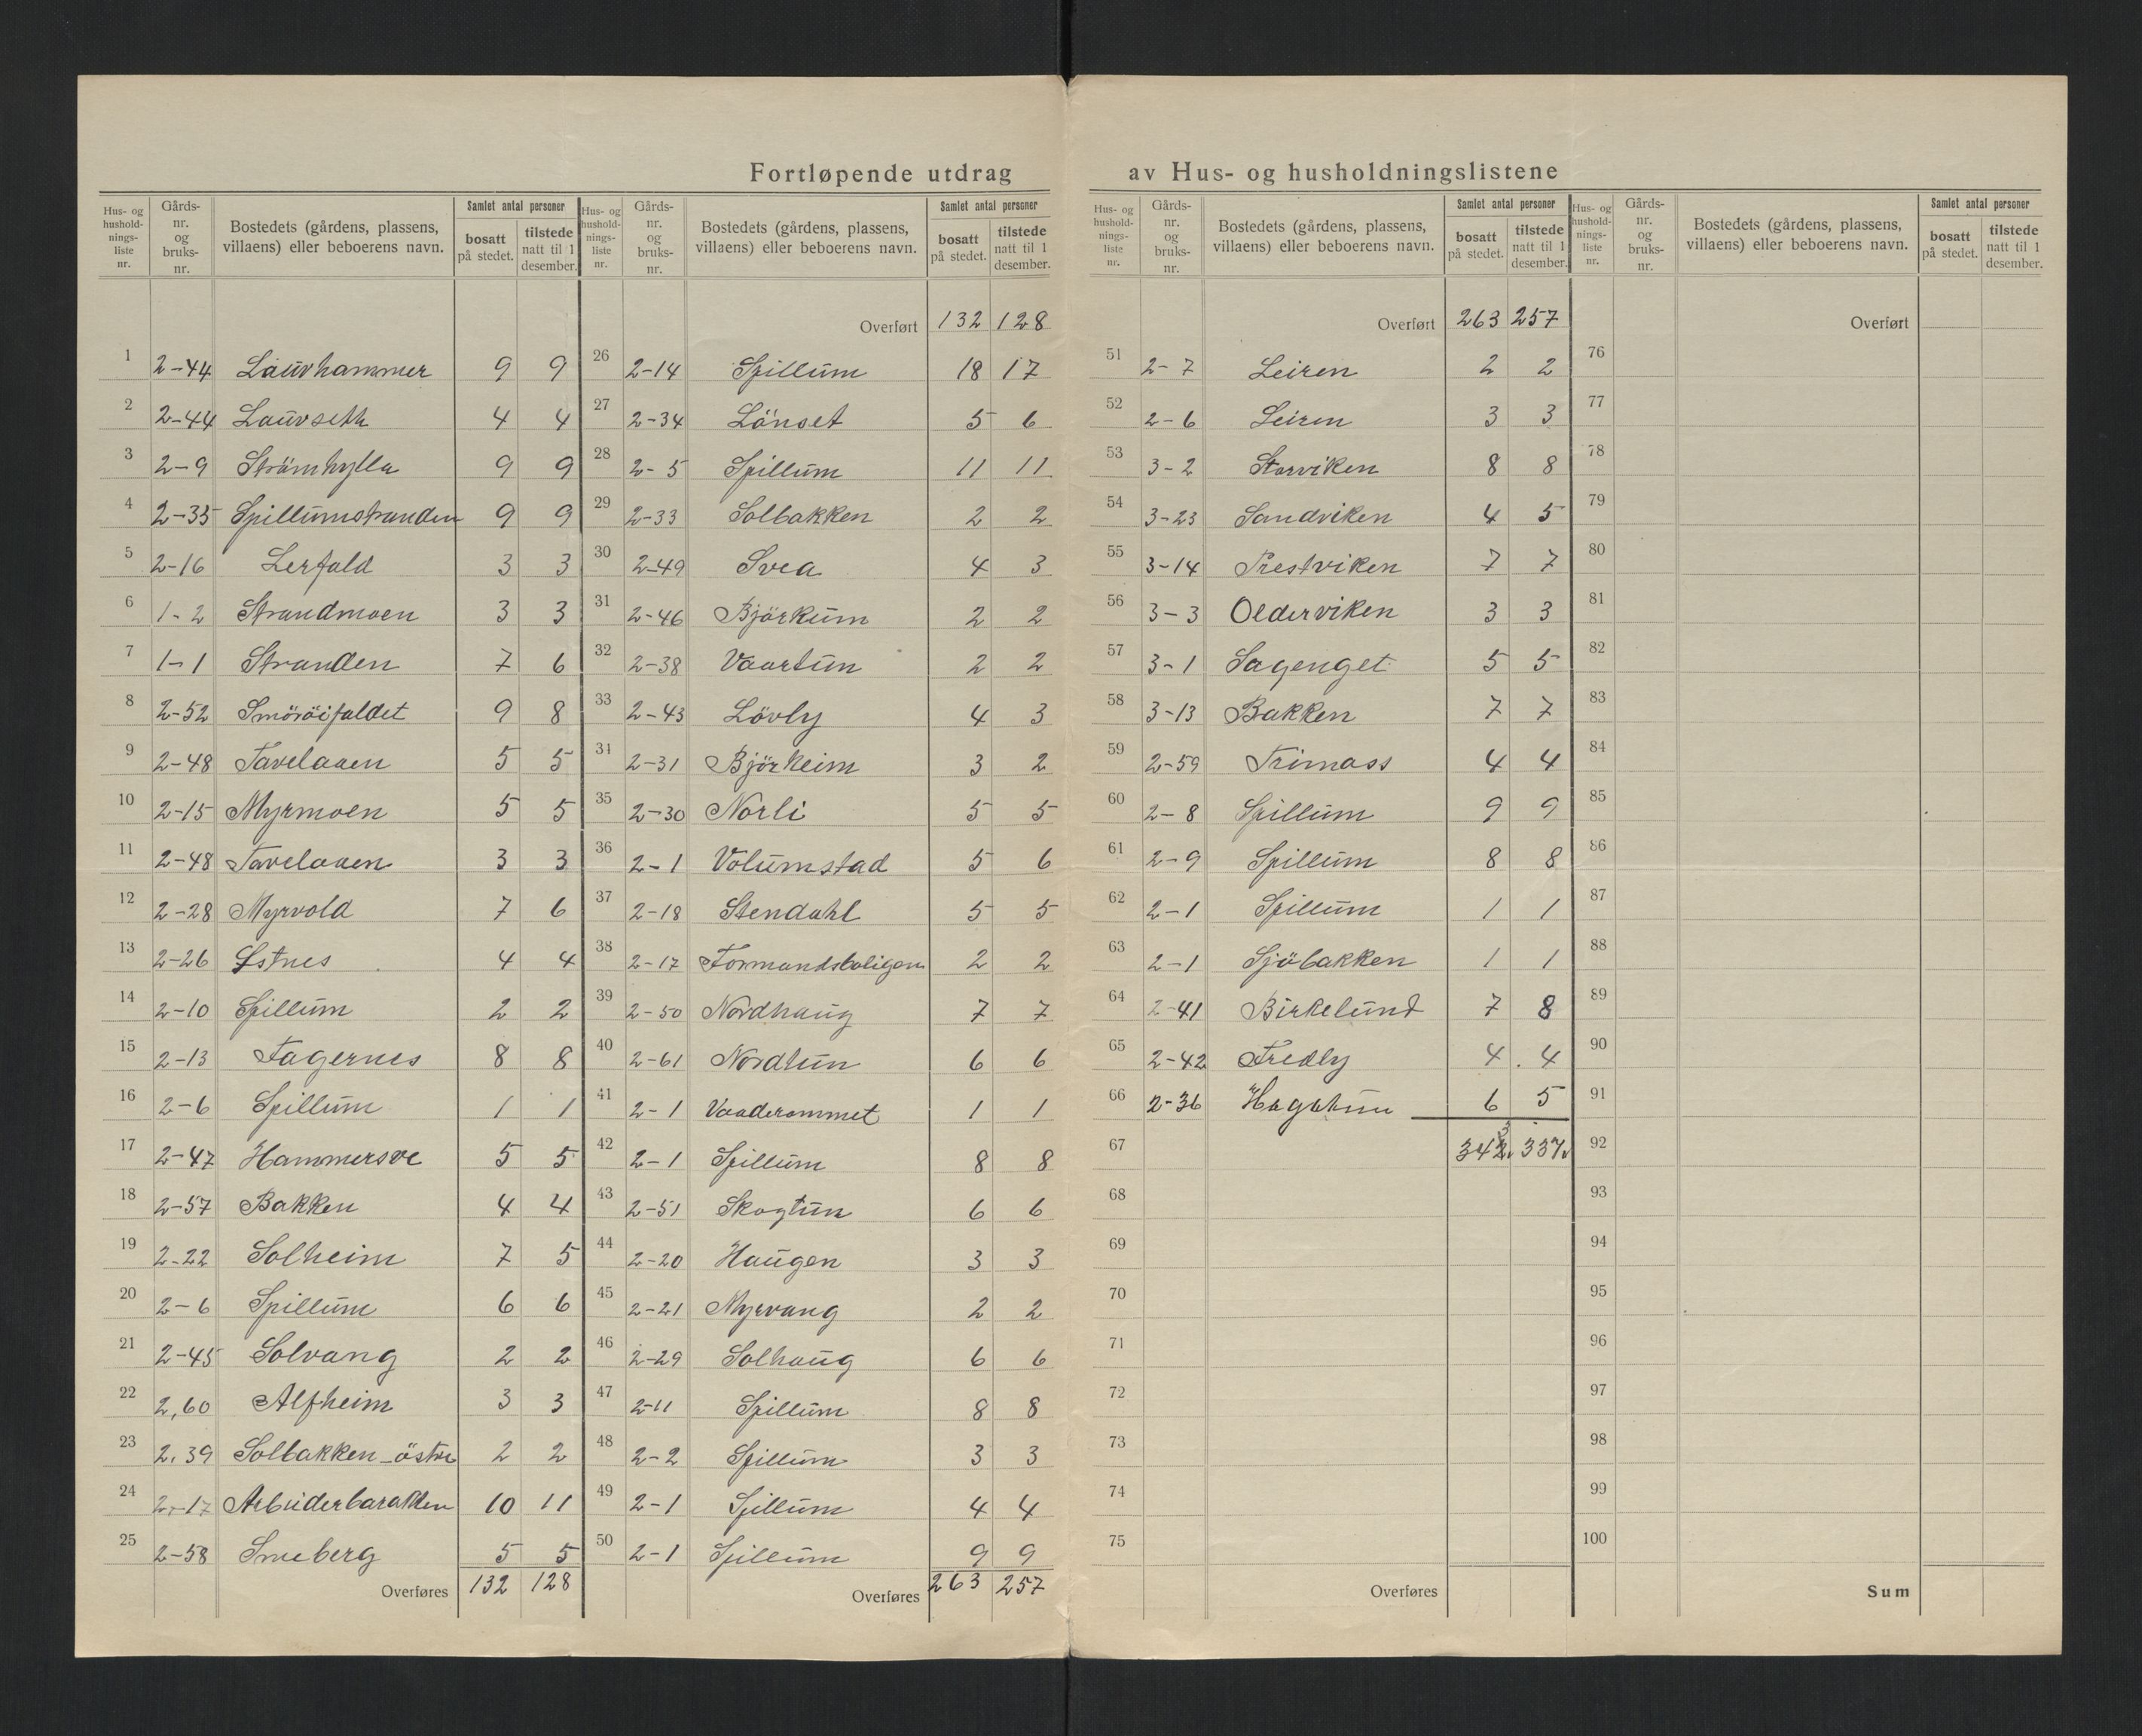 Fortløpende utdrag av Hus- og husholdningslistene
Hus- og hushold- nings- liste nr. | Gårds- nr. og bruks- nr. | Bostedets (gårdens, plassens, villaens) eller beboerens navn. | Samlet antal personer | bosatt på stedet. | tilstede natt til 1 desember.
1 2-44 Lauvhammer 9 9
2 2-44 Lauvseth 4 4
3 2-9 Strömhylla 9 9
4 2-35 Spillumstranden 9 9
5 2-16 Lerfald 3 3
6 1-2 Strandmoen 3 3
7 1-1 Stranden 7 6
8 2-52 Smöröifaldet 9 8
9 2-48 Tavelaaen 5 5
10 2-15 Myrmoen 5 5
11 2-48 Tavelaaen 3 3
12 2-28 Myrvold 7 6
13 2-26 Estnes 4 4
14 2-10 Spillum 2 2
15 2-13 Fagernes 8 8
16 2-6 Spillum 1 1
17 2-47 Hammersve 5 5
18 2-57 Bakken 4 4
19 2-22 Solheim 7 5
20 2-6 Spillum 6 6
21 2-45 Solvang 2 2
22 2,60 Alfheim 3 3
23 2.39 Solbakken-östre 2 2
24 2-17 Arbeiderbarakken 10 11
25 2-58 Sneberg 5 5
Overføres 132 128
Hus- og hushold- nings- liste nr. | Gårds- nr. og bruks- nr. | Bostedets (gårdens, plassens, villaens) eller beboerens navn. | Samlet antal personer | bosatt på stedet. | tilstede natt til 1 desember.
Overført 132 128
26 2-14 Spillum 18 17
27 2-34 Länset 5 6
28 2-5 Spillum 11 11
29 2-33 Solbakken 2 2
30 2-49 Svea 4 3
31 2-46 Björkum 2 2
32 2-38 Vaartun 2 2
33 2-43 Lövly 4 3
34 2-31 Björkeim 3 2
35 2-30 Norli 5 5
36 2-1 Volumstad 5 6
37 2-18 Stendahl 5 5
38 2-17 Formandsboligen 2 2
39 2-50 Nordhaug 7 7
40 2-61 Nordtun 6 6
41 2-1 Vaaderommet 1 1
42 2-1 Spillum 8 8
43 2-51 Skogtun 6 6
44 2-20 Haugen 3 3
45 2-21 Myrvang 2 2
46 2-29 Solhaug 6 6
47 2-11 Spillum 8 8
48 2-2 Spillum 3 3
49 2-1 Spillum 4 4
50 2-1 Spillum 9 9
Overføres 263 257
Hus- og hushold- nings- liste nr. | Gårds- nr. og bruks- nr. | Bostedets (gårdens, plassens, villaens) eller beboerens navn. | Samlet antal personer | bosatt på stedet. | tilstede natt til 1 desember.
Overført 263 257
51 2-7 Leiren 2 2
52 2-6 Leiren 3 3
53 3-2 Storviken 8 8
54 3-23 Sandviken 4 5
55 3-14 Prestviken 7 7
56 3-3 Olderviken 3 3
57 3-1 Sagenget 5 5
58 3-13 Bakken 7 7
59 2-59 Trimass 4 4
60 2-8 Spillum 9 9
61 2-9 Spillum 8 8
62 2-1 Spillum 1 1
63 2-1 Sjöbakken 1 1
64 2-41 Birkelund 7 8
65 2-42 Fredly 4 4
66 2-36 Hagatun 6 5
67 342 337
68
69
70
71
72
73
74
75
Overføres
Hus- og hushold- nings- liste nr. | Gårds- nr. og bruks- nr. | Bostedets (gårdens, plassens, villaens) eller beboerens navn. | Samlet antal personer | bosatt på stedet. | tilstede natt til 1 desember.
Overført
76
77
78
79
80
81
82
83
84
85
86
87
88
89
90
91
92
93
94
95
96
97
98
99
100
Sum